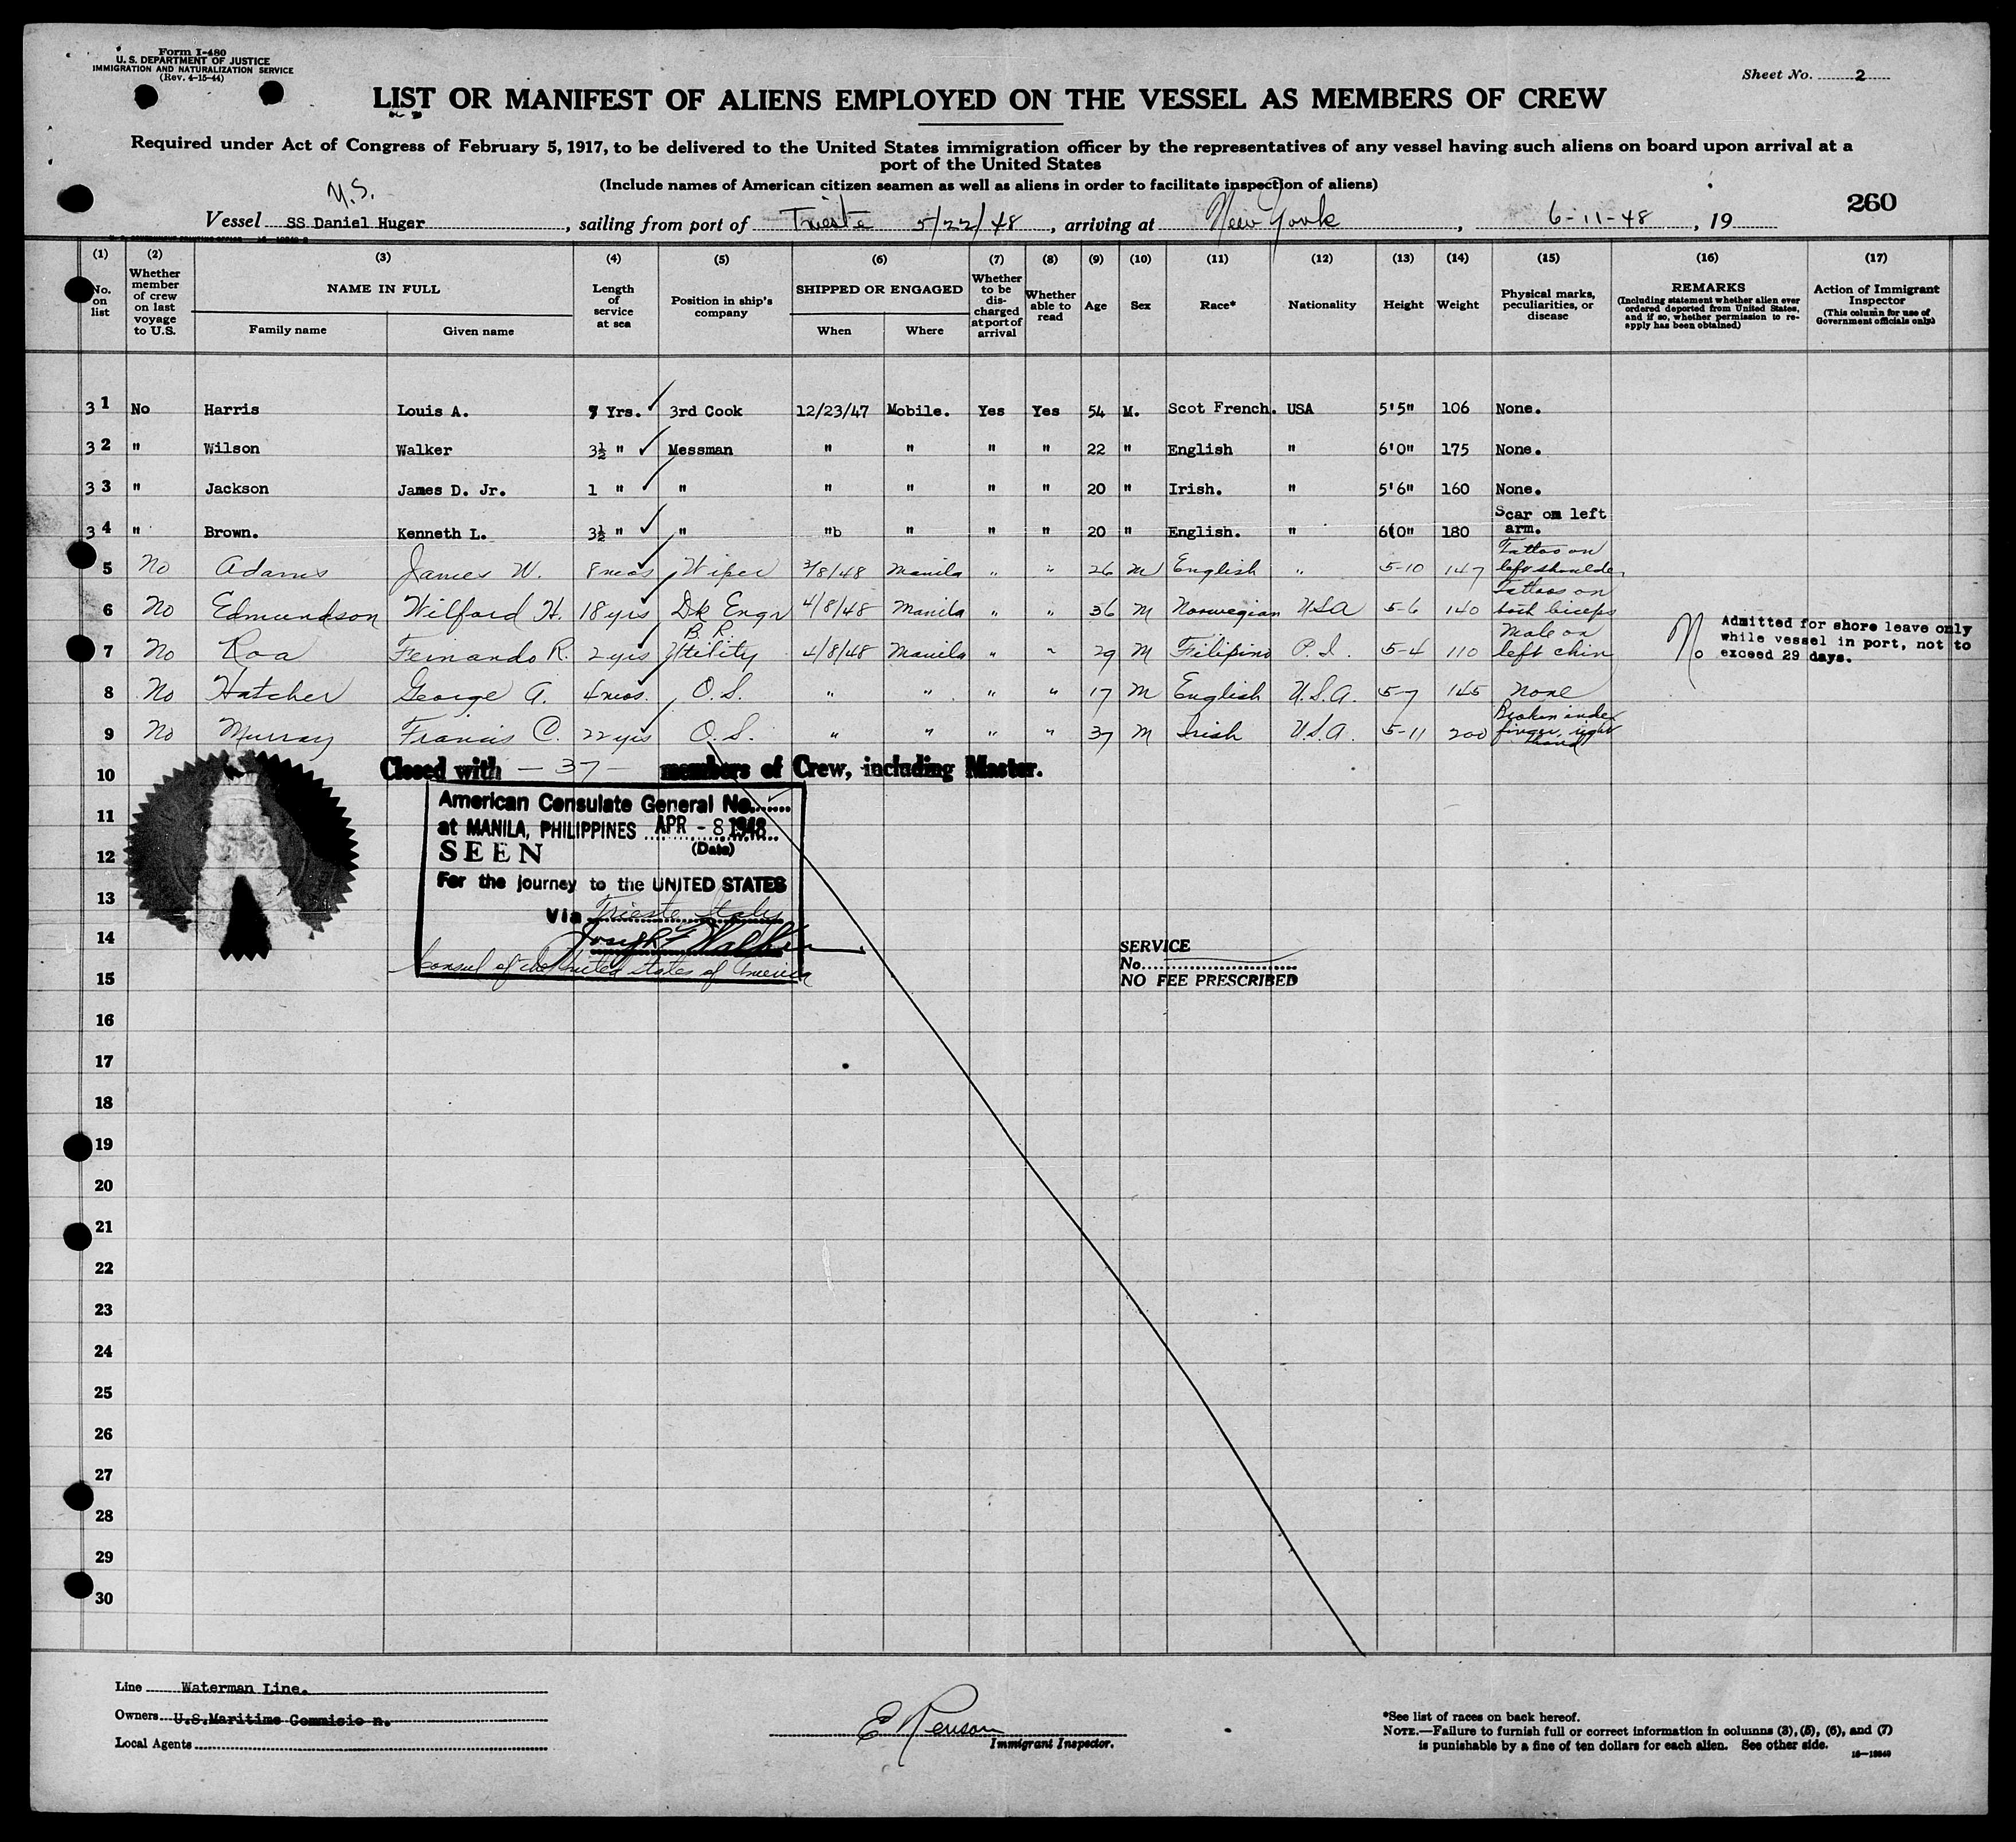 Form I-480
U. S. DEPARTMENT OF JUSTICE
IMMIGRATION AND NATURALIZATION SERVICE
(Rev. 4-15-44)
Sheet No. 2
LIST OR MANIFEST OF ALIENS EMPLOYED ON THE VESSEL AS MEMBERS OF CREW
Required under Act of Congress of February 5, 1917, to be delivered to the United States immigration officer by the representatives of any vessel having such aliens on board upon arrival at a
port of the United States
(Include names of American citizen seamen as well as aliens in order to facilitate inspection of aliens)
260
U.S.
Vessel SS Daniel Huger, sailing from port of Trieste 5/22/48, arriving at New York, 6-11-48, 19
(1) (2) (3) (4) (5) (6) (7) (8) (9) (10) (11) (12) (13) (14) (15) (16) (17)
No. on list
Whether member of crew on last voyage to U.S.
NAME IN FULL
Family name
Given name
Length of service at sea
Position in ship's company
SHIPPED OR ENGAGED
When
Where
Whether to be discharged at port of arrival
Whether able to read
Age
Sex
Race*
Nationality
Height
Weight
Physical marks, peculiarities, or disease
REMARKS
(Including statement whether alien ever ordered deported from United States, and if so, whether permission to re-apply has been obtained)
Action of Immigrant Inspector
(This column for use of Government officials only)
31 No Harris Louis A. 7 Yrs. 3rd Cook 12/23/47 Mobile. Yes Yes 54 M. Scot French. USA 5'5" 106 None.
32 " Wilson Walker 3½ " Messman " " " " 22 " English " 6'0" 175 None.
33 " Jackson James D. Jr. 1 " " " " " " 20 " Irish. " 5'6" 160 None.
34 " Brown. Kenneth L. 3½ " " "b " " " 20 " English. " 6(0" 180 Scar on left arm.
5 No Adams James W. 8 mos Wiper 3/8/48 Manila " " 26 M English " 5-10 147 Tattoo on left shoulder
6 No Edmundson Wilford H. 18 yrs Dk Engr 4/8/48 Manila " " 36 M Norwegian USA 5-6 140 Tattoos on both biceps
7 No Roa Fernando R. 2 yrs B.R. Utility 4/8/48 Manila " " 29 M Filipino P.I. 5-4 110 Mole on left chin
No Admitted for shore leave only
while vessel in port, not to
exceed 29 days.
8 No Hatcher George A. 4 mos. O.S. " " " " 17 M English U.S.A. 5-7 145 None
9 No Murray Francis C. 22 yrs O.S. " " " " 37 M Irish U.S.A. 5-11 200 Broken index finger, right hand
10
Closed with - 37 - members of Crew, including Master.
American Consulate General No.
11
at MANILA, PHILIPPINES APR - 8 1948
(Date)
SEEN
12
For the journey to the UNITED STATES
13
Via Trieste Italy
14
Consul of the United States of America
15
SERVICE
No.
NO FEE PRESCRIBED
16
17
18
19
20
21
22
23
24
25
26
27
28
29
30
Line Waterman Line.
Owners U.S.Maritime Commicio n.
Local Agents
Immigrant Inspector.
*See list of races on back hereof.
NOTE.—Failure to furnish full or correct information in columns (3), (5), (6), and (7)
is punishable by a fine of ten dollars for each alien. See other side.